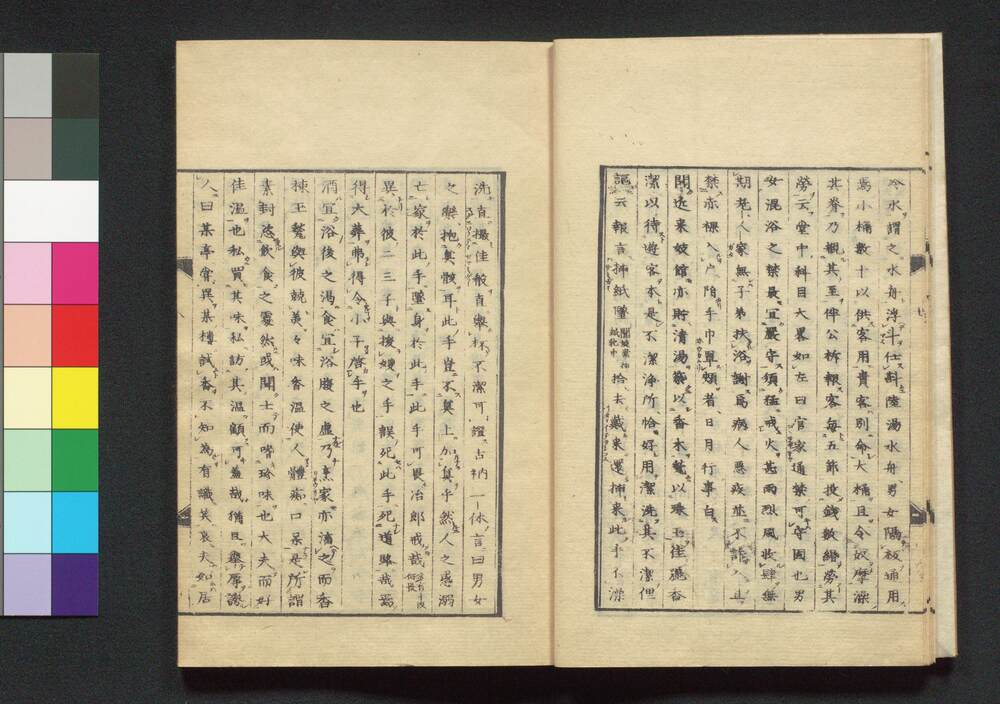 冷水謂之水舟淨斗仕斟陸湯水舟男女隔板通用
爲小桶數十以供客用貴客別命大桶且令奴摩澡
其脊乃覩其至伴公柝報客每五節投錢數緡勞其
勞云堂中科目大畧如左曰官家通禁可守固也男
女混浴之禁最宜嚴守須猛戒火甚雨烈風收肆無
期老人家無子弟扶浴謝焉病人惡疾並不許入且
禁赤裸入戶附手巾罩頰者日月行事白
聞近來妓館亦貯淸湯以香木以珠玉佳麗香
潔以待遊客本是不潔淨所恰好用潔洗其不潔但
謳云報言插紙墮 拾去戴來還插來此手不潔
洗直撮佳殽直擧杯不潔可證古衲一休言曰男女
之樂抱臭骸耳此手豈不臭上加臭乎然人之愚溺
亡家於此手墮身於此手此手可畏冶郎戒哉
異於彼二三子與援嫂之手誤死此手死道路哉焉
得大葬弗得令小子啓手也
酒宜浴後之渴食宜浴腹之虛乃烹家亦滴之而香
揀玉鬻與彼競美々味香溫使人體痴口呆是所謂
素封恣飮食之處然或閑士而嗜珍味也大夫而好
佳溫也私買其味私訪其溫顧可羞哉猶且擧犀謗
人曰某亭嘗異某樓試香不知爲有識笑哀夫如居